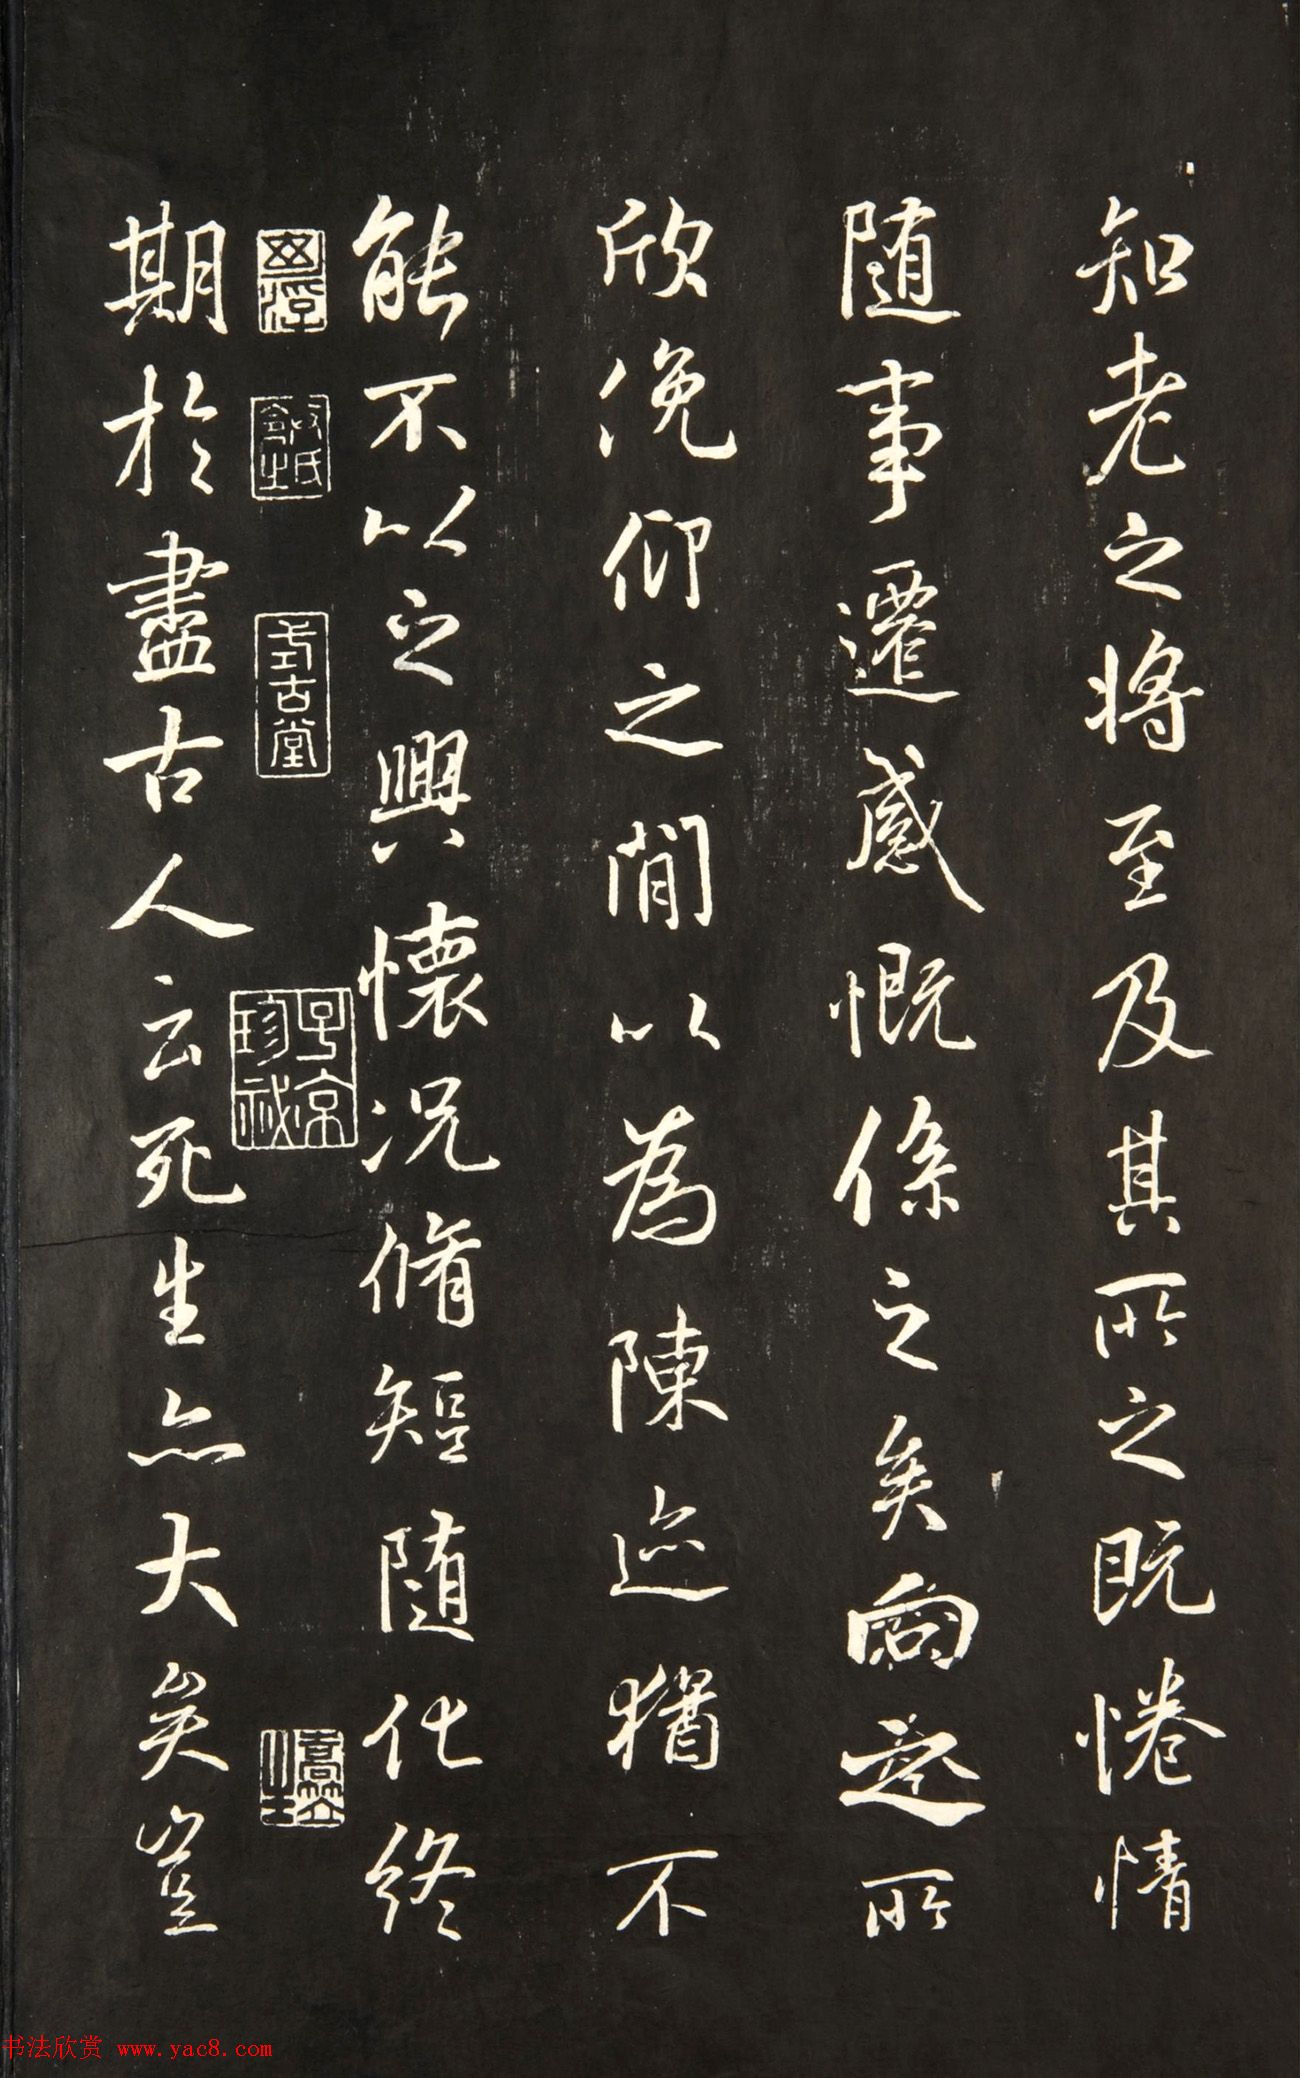 知老之將至及其所之既惓情
随事遷感慨係之矣向之所
欣俛仰之間以為陳迹猶不
能不以之興懷況脩短随化終
期於盡古人云死生亦大矣豈
式古堂
子京珍祕
書法欣赏 www.yac8.com